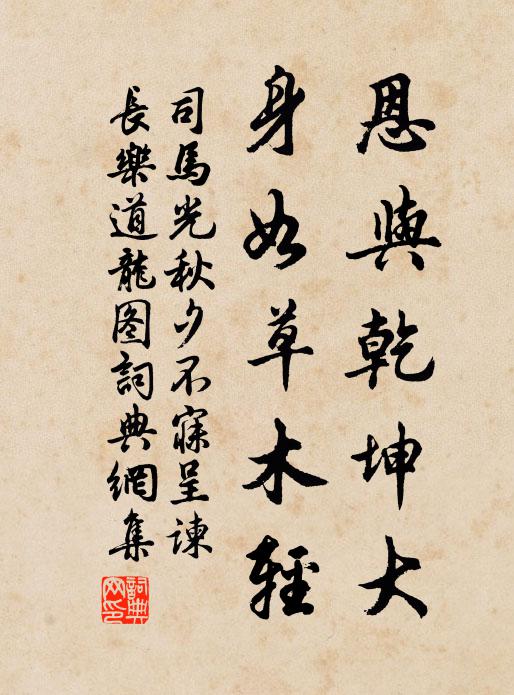 恩與乾坤大
身如草木輕
司馬光秋夕不寐呈諫
長樂道龍图詞典網集
詞典网印